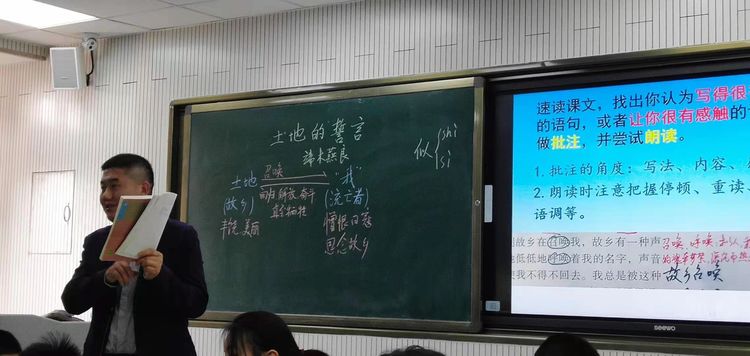 土地的誓言
端木蕻良
土地 召唤 "我"
(故乡) 回归 解放 奋斗 (流亡者)
丰饶 美丽 憎恨日寇
思念故乡
似 { shì
sì
速读课文，找出你认为写得很
的语句，或者让你很有感触的
做批注，并尝试朗读。
1. 批注的角度：写法、内容、
2. 朗读时注意把握停顿、重读
语调等。
故乡在召唤我，故乡有一种声
低低地呼唤着我的名字，声音
我不得不回去。我总是被这种
召唤 呼唤
故乡召唤
seewo